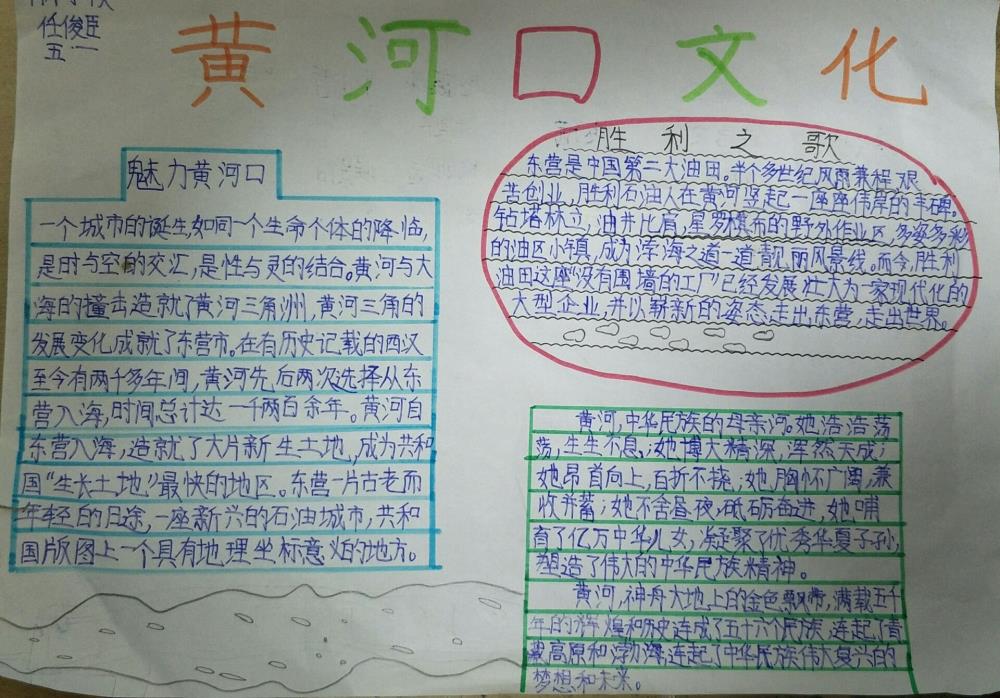 任俊臣
五·一
黄河口文化
魅力黄河口
一个城市的诞生,如同一个生命个体的降临,
是时与空的交汇,是性与灵的结合。黄河与大
海的撞击造就了黄河三角洲,黄河三角的
发展变化成就了东营市。在有历史记载的西汉
至今有两千多年间,黄河先后两次选择从东
营入海,时间总计达一千两百余年。黄河自
东营入海,造就了大片新生土地,成为共和
国“生长土地”最快的地区。东营一片古老而
年轻的归途,一座新兴的石油城市,共和
国版图上一个具有地理坐标意义的地方。
胜利之歌
东营是中国第二大油田。半个多世纪风雨兼程,艰
苦创业,胜利石油人在黄河竖起一座座伟岸的丰碑。
钻塔林立,油井比肩,星罗棋布的野外作业区,多姿多彩
的油区小镇,成为渤海之道一道靓丽风景线。而今,胜利
油田这座“没有围墙的工厂”已经发展壮大为一家现代化的
大型企业,并以崭新的姿态,走出东营,走出世界。
黄河,中华民族的母亲河。她,浩浩荡
荡,生生不息。她博大精深,浑然天成;
她昂首向上,百折不挠;她,胸怀广阔,兼
收并蓄;她不舍昼夜,砥砺奋进,她哺
育了亿万中华儿女,凝聚了优秀华夏子孙,
塑造了伟大的中华民族精神。
黄河,神舟大地上的金色飘带,满载五千
年的辉煌和历史连成了五十六个民族,连起了青
藏高原和渤海,连起了中华民族伟大复兴的
梦想和未来。